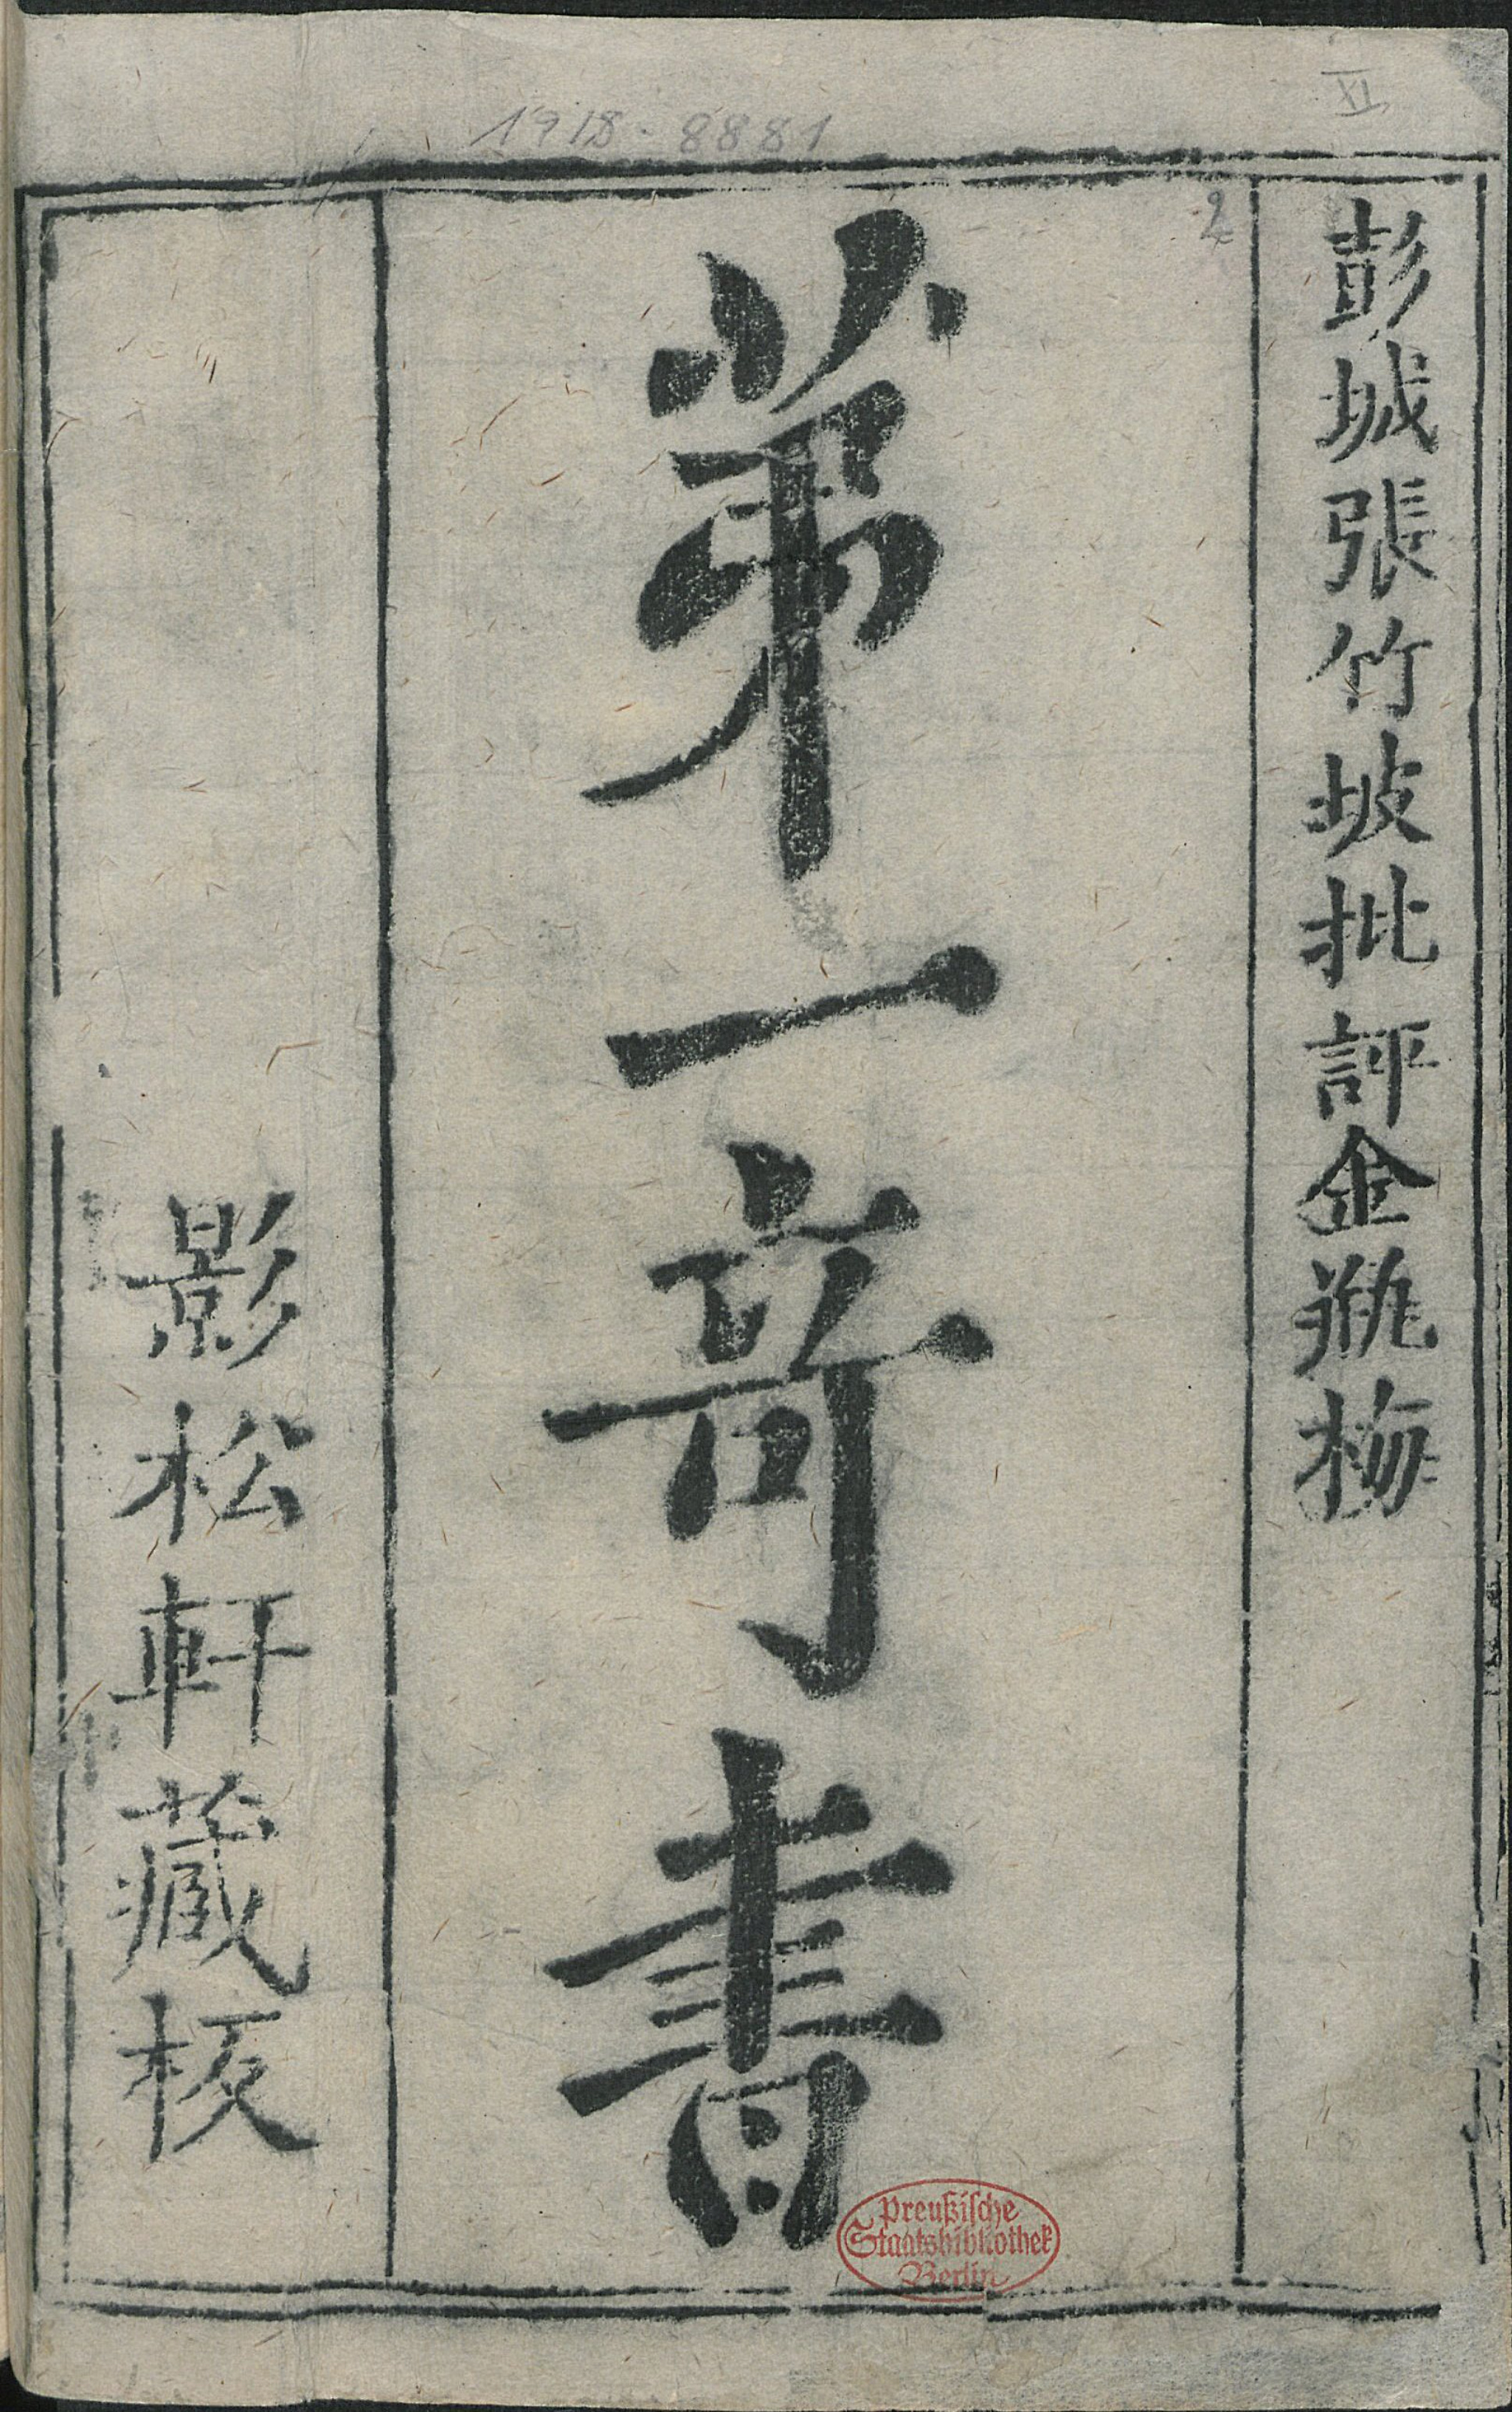 彭城張竹坡批評金瓶梅
第一奇書
影松軒藏板
1918. 8881
XI
2
Preußische
Staatsbibliothek
Berlin